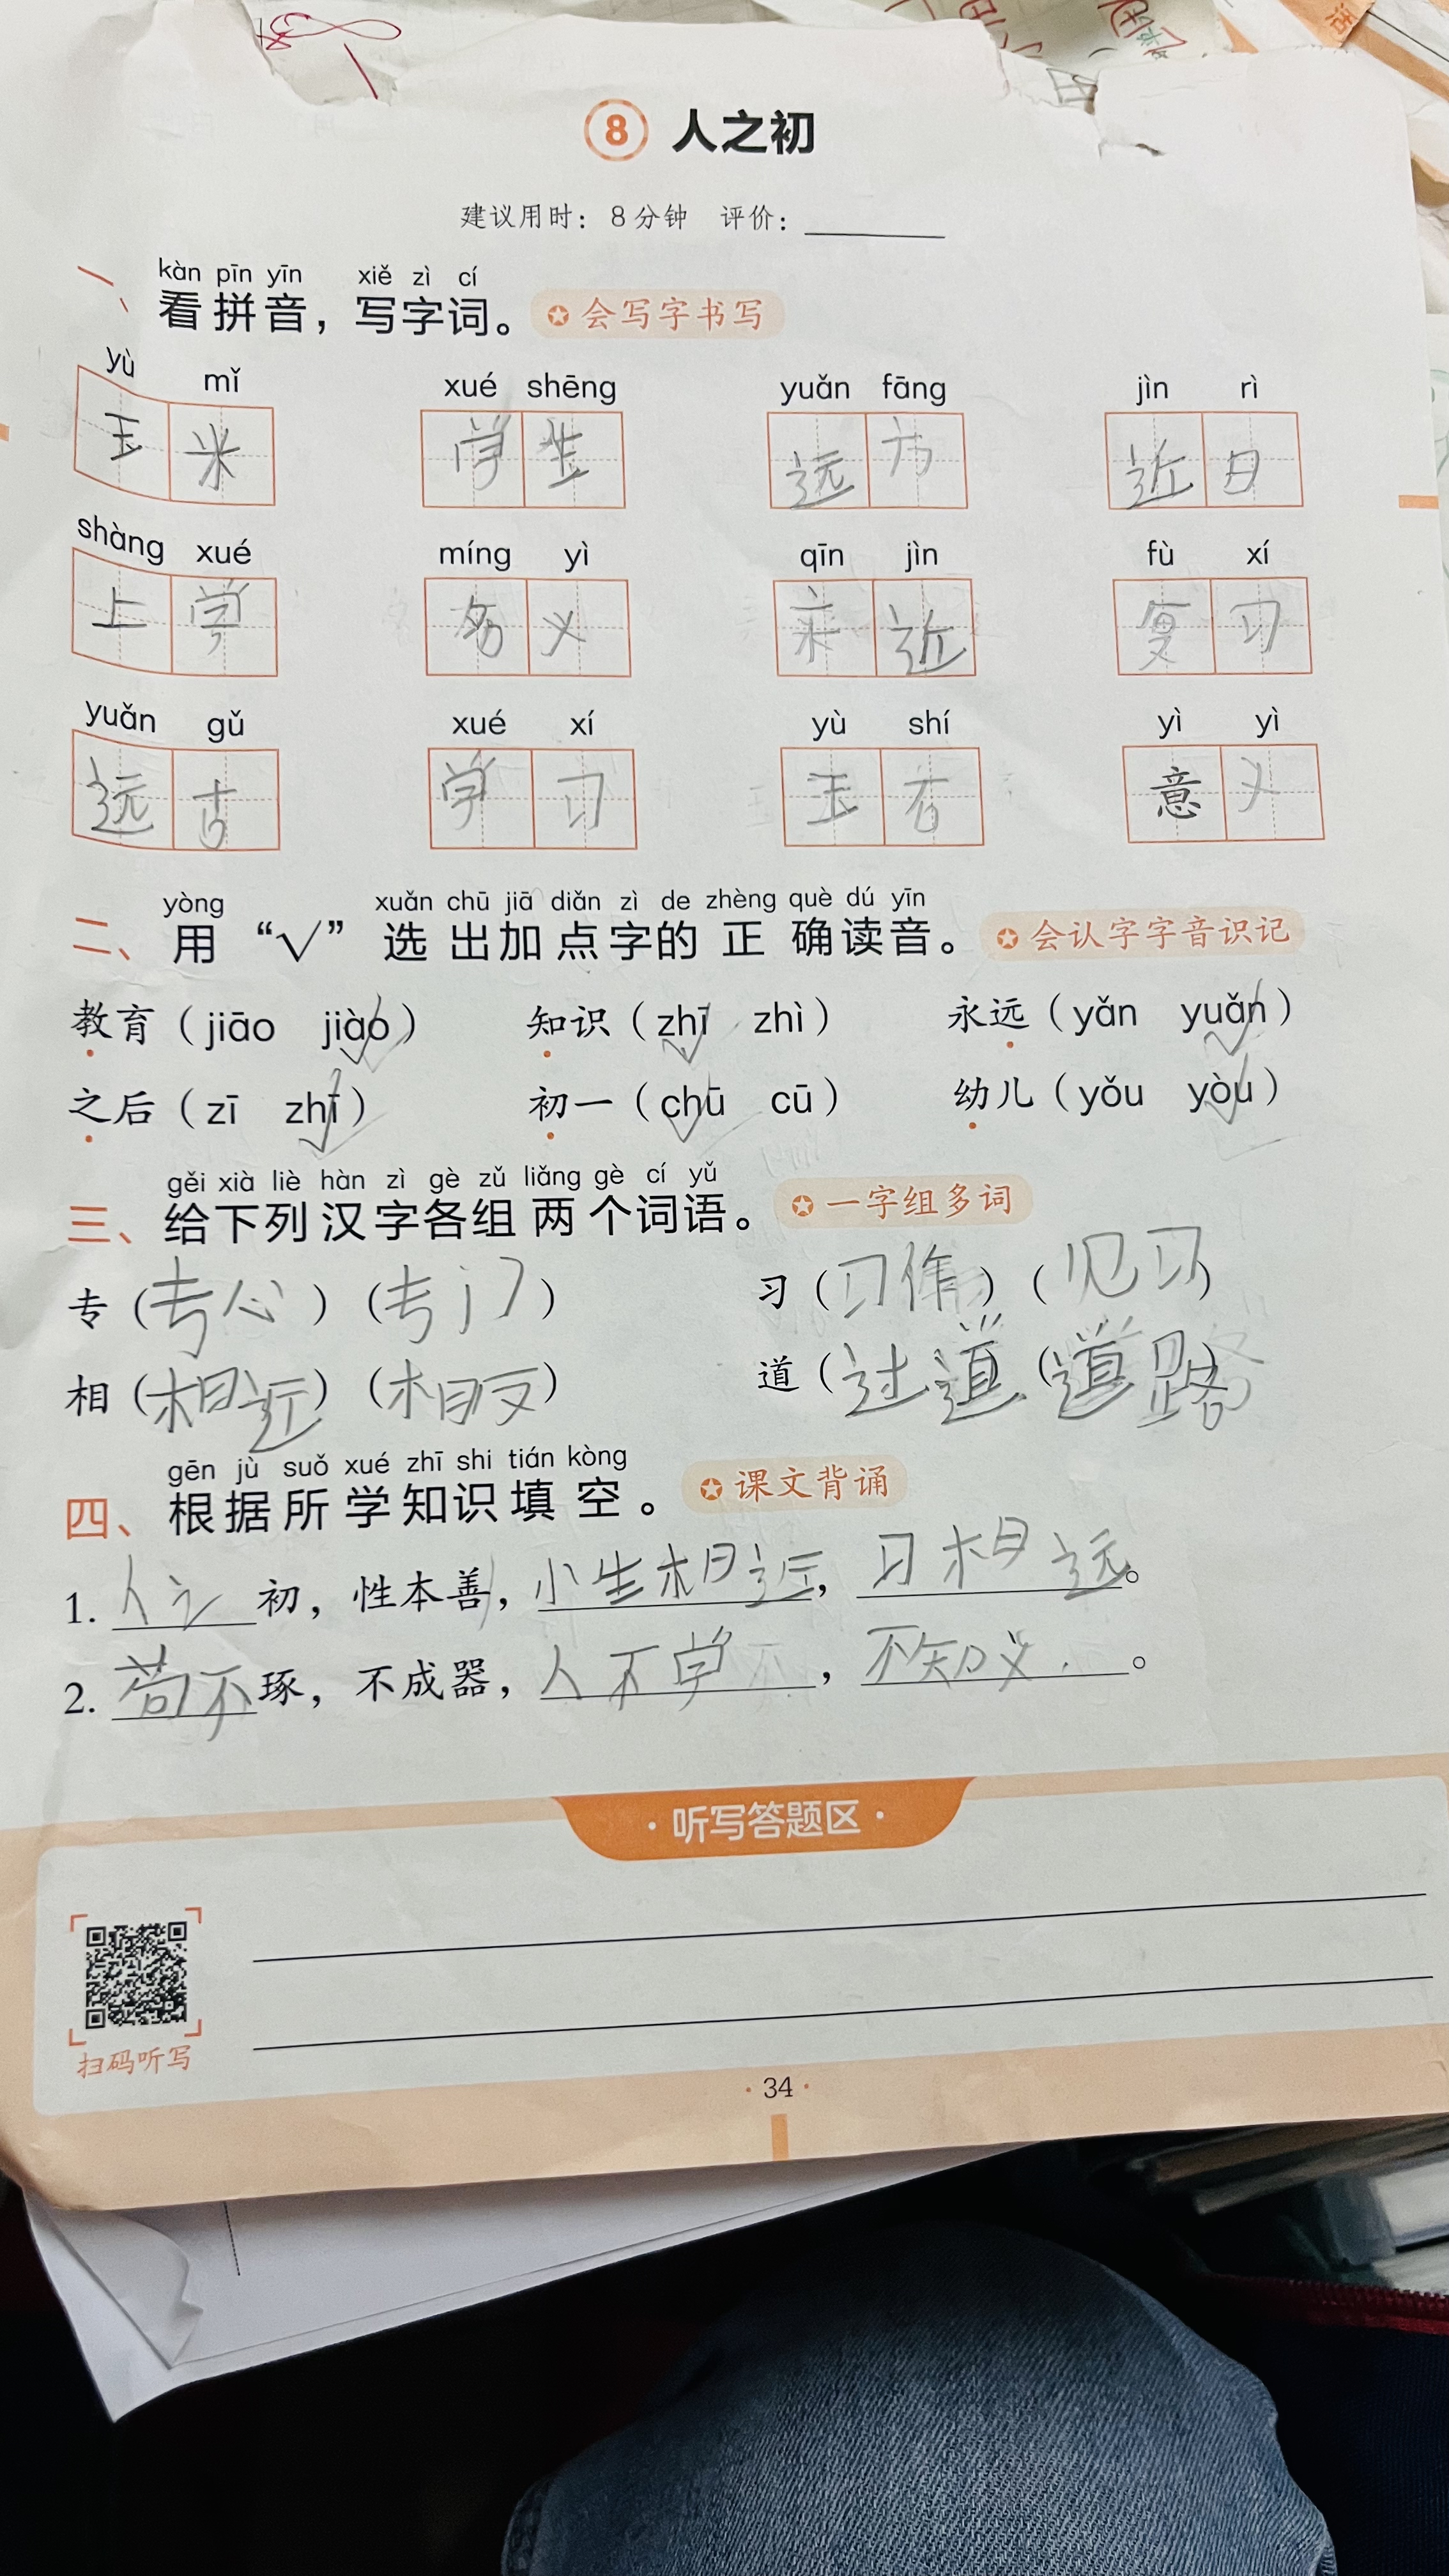 8 人之初
建议用时：8分钟 评价：
kàn pīn yīn xiě zì cí
一、看拼音，写字词。 会写字书写
yù mǐ xué shēng yuǎn fāng jìn rì
玉米 学生 远方 近日
shàng xué míng yì qīn jìn fù xí
上学 名义 亲近 复习
yuǎn gǔ xué xí yù shí yì yì
远古 学习 玉石 意义
yòng xuǎn chū jiā diǎn zì de zhèng què dú yīn
二、用“√”选出加点字的正确读音。 会认字字音识记
教育（jiāo jiào） 知识（zhī zhì） 永远（yǎn yuǎn）
之后（zī zhī） 初一（chū cū） 幼儿（yǒu yòu）
gěi xià liè hàn zì gè zǔ liǎng gè cí yǔ
三、给下列汉字各组两个词语。 一字组多词
专（专心）（专门） 习（习作）（见习）
相（相近）（相反） 道（过道）（道路）
gēn jù suǒ xué zhī shi tián kòng
四、根据所学知识填空。 课文背诵
1. 人之初，性本善，小生相近，习相远。
2. 苟不琢，不成器，人不学，不知义。
·听写答题区·
扫码听写
·34·